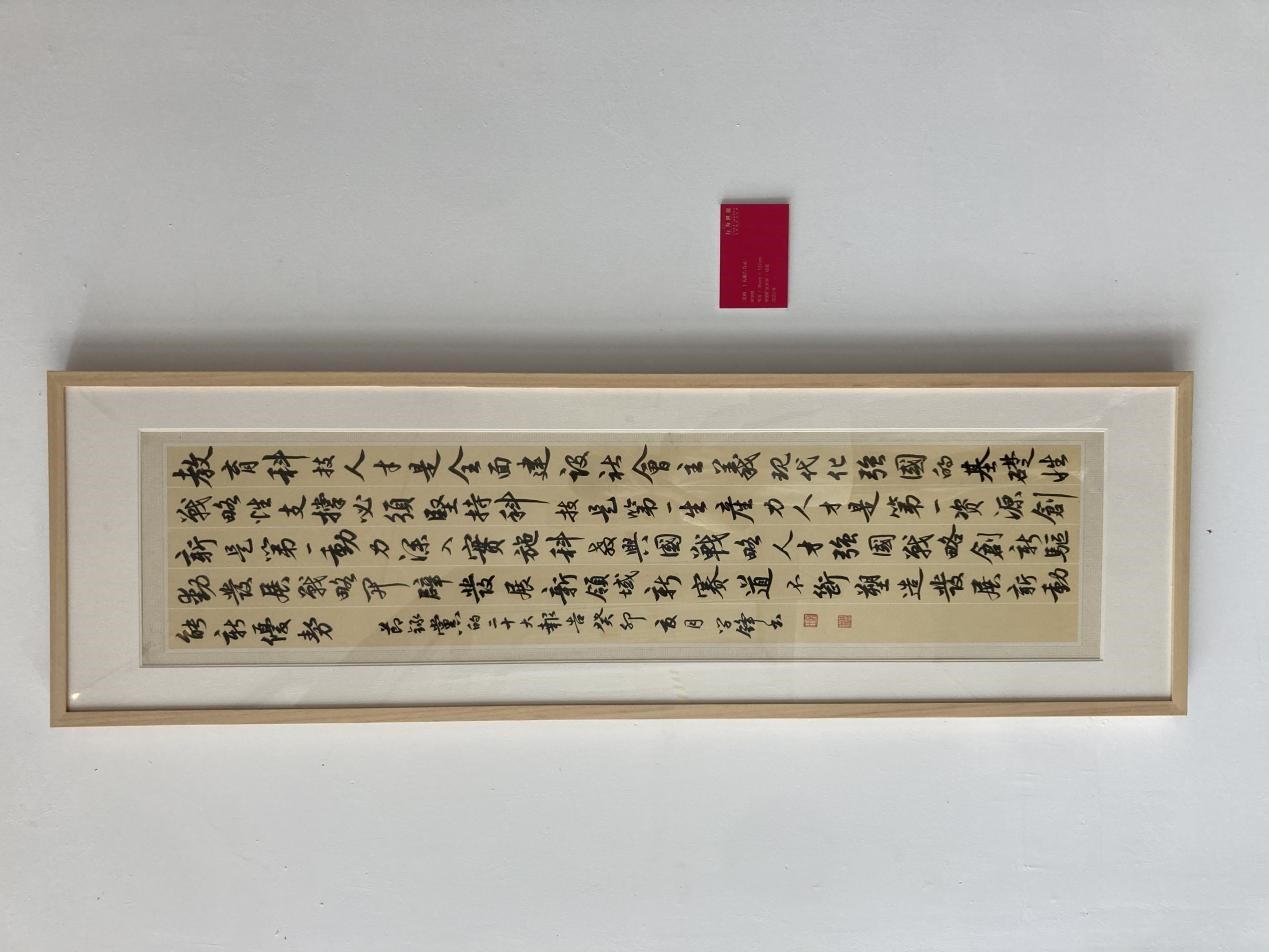 教育科技人才是全面建设社會主義现代化強國的基礎性
戰略性支撐必須堅持科技是第一生產力人才是第一资源創
新是第一動力深入實施科教興國戰略人才強國戰略創新驅
動發展戰略開辟發展新領域新賽道不斷塑造發展新動
能新優勢
節錄黨的二十大報告癸卯夏月学鋒书